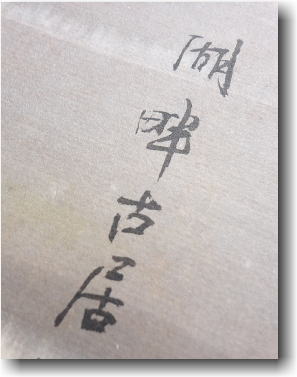 湖畔古居